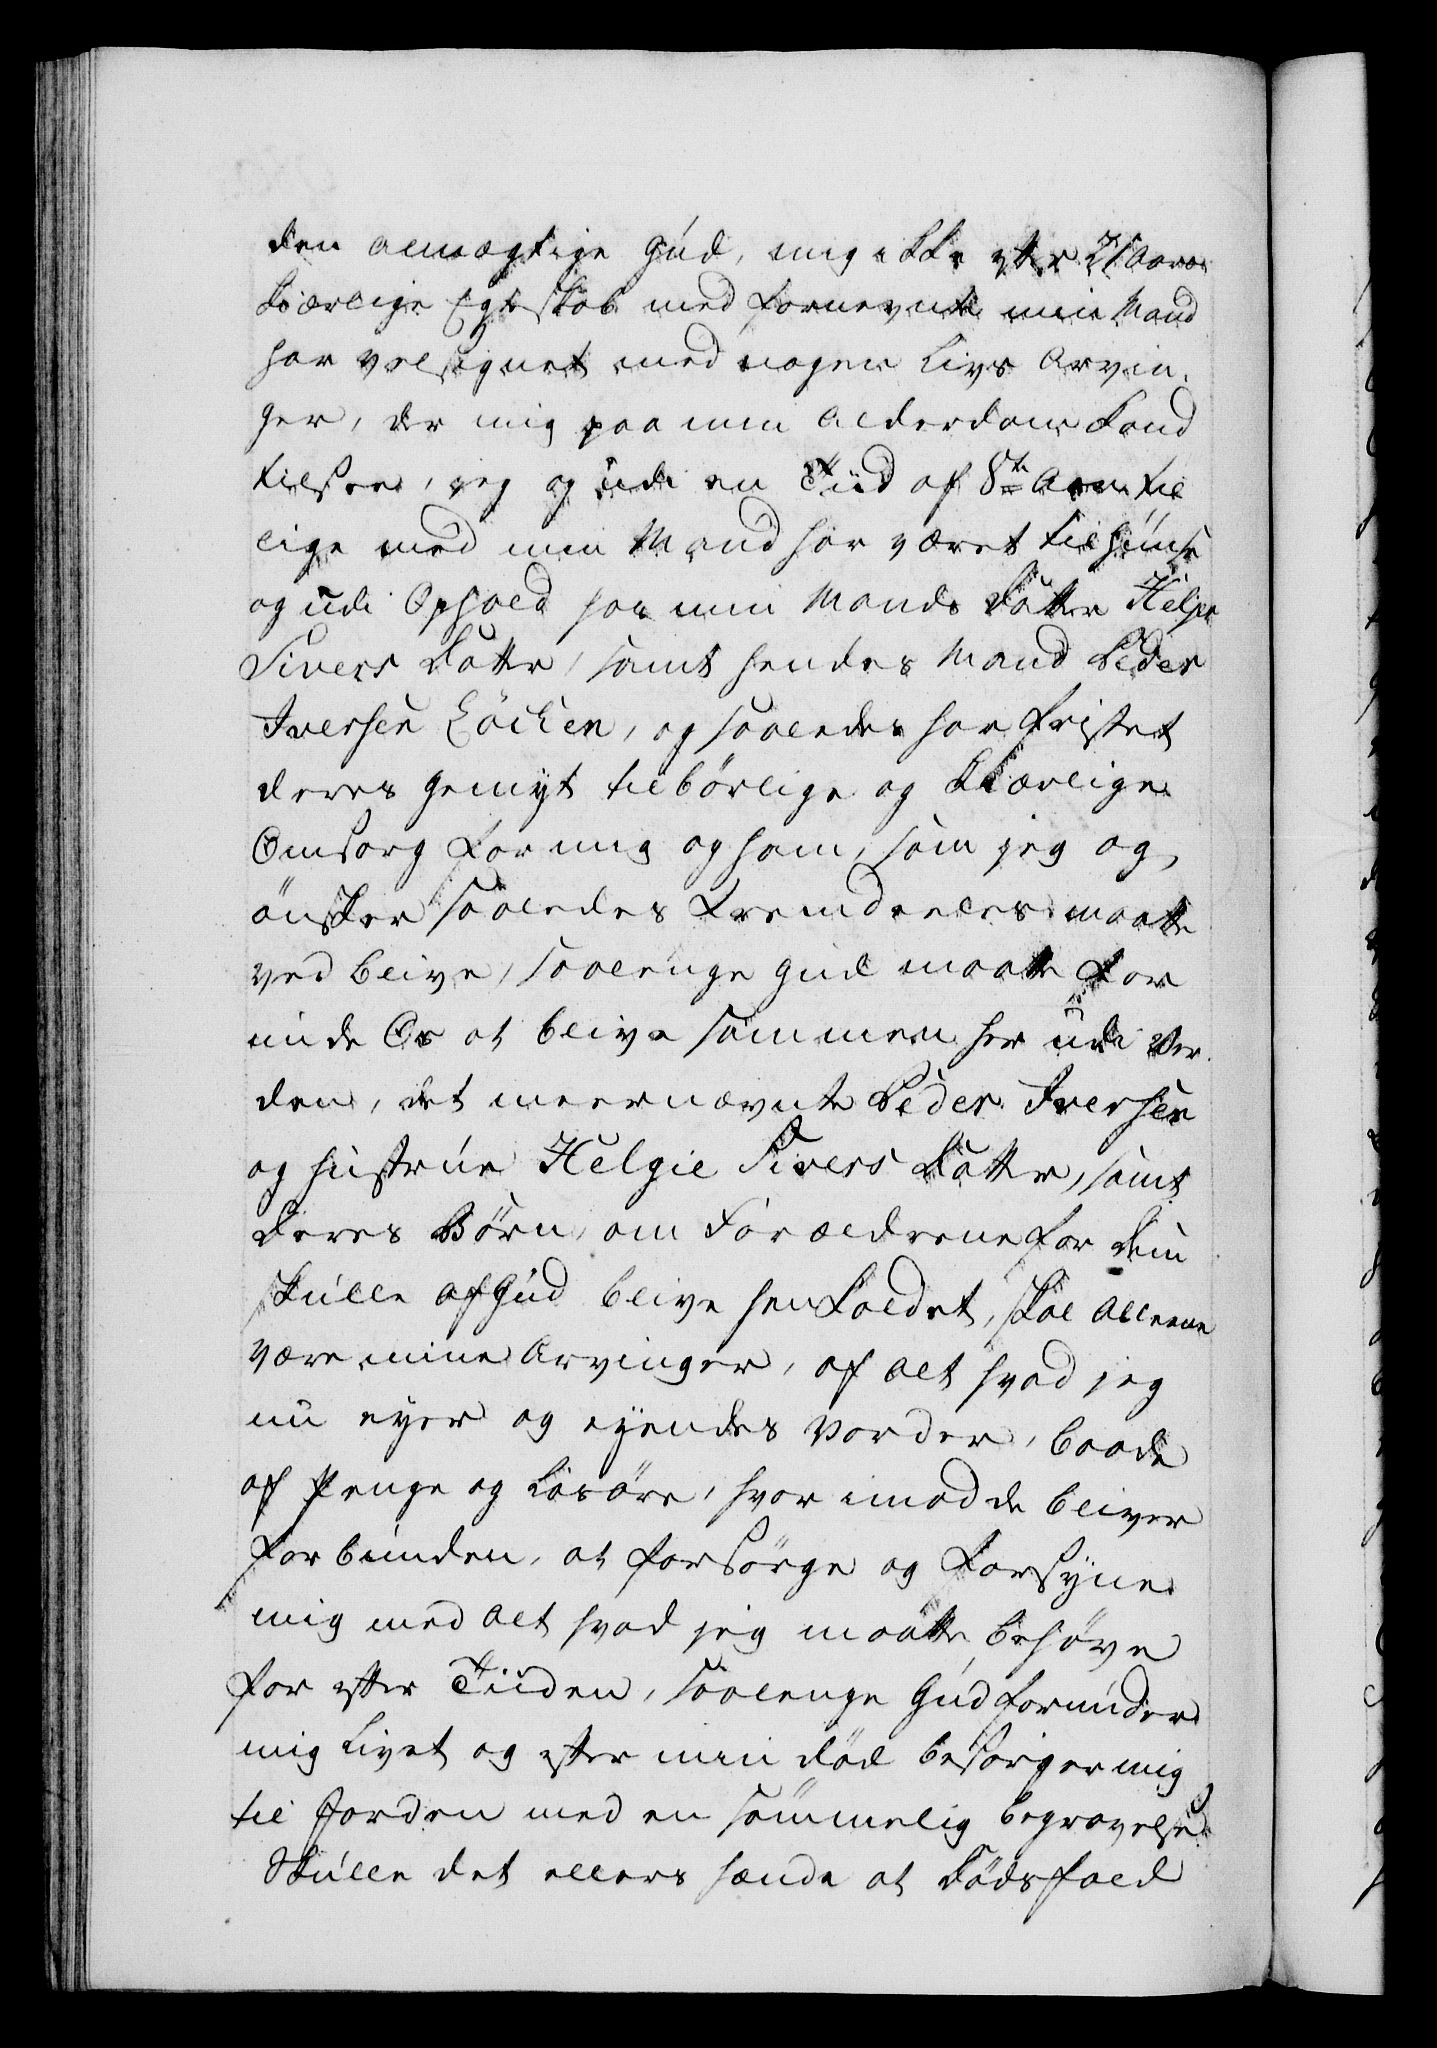 den almægtige Gud, mig ikke efter 21 Aars
kiærlige Egteskab med fornevnte min Mand
har velsignet med nogen Livs Arvin-
ger, der mig paa min Alderdom kand
tilsee, jeg og udi en Tiid af 8te Aar til
lige med min Mand har været til Huuse
og udi Ophold hos min Mands Datter Helge
Sivers Datter, samt hendes Mand Peder
Iversen Löcken, og saaledes har fristet
deres gemyt tilbörlige og kiærlige
Omsorg for mig og ham, som jeg og
önsker saaledes fremdeeles maatte
ved blive, saalenge Gud maatte for
unde Os at blive sammen her udi Ver
den, det meernævnte Peder Iversen
og Hustrue Helgie Sivers Datter, samt
deres Börn, om Forældrene for dem
skulle af Gud blive henkaldet, skal alleene
være mine Arvinger, af alt hvad jeg
nu eyer og eyendes vorder, baade
af Penge og Lösöre, hvor imod de bliver
forbunden, at forsörge og forsyne
mig med alt hvad jeg maatte behöve
for efter Tiiden, saalenge Gud forunder
mig Livet og efter min död besörger mig
til Jorden med en sömmelig begravelse
Skulle det ellers hænde at Dödsfald